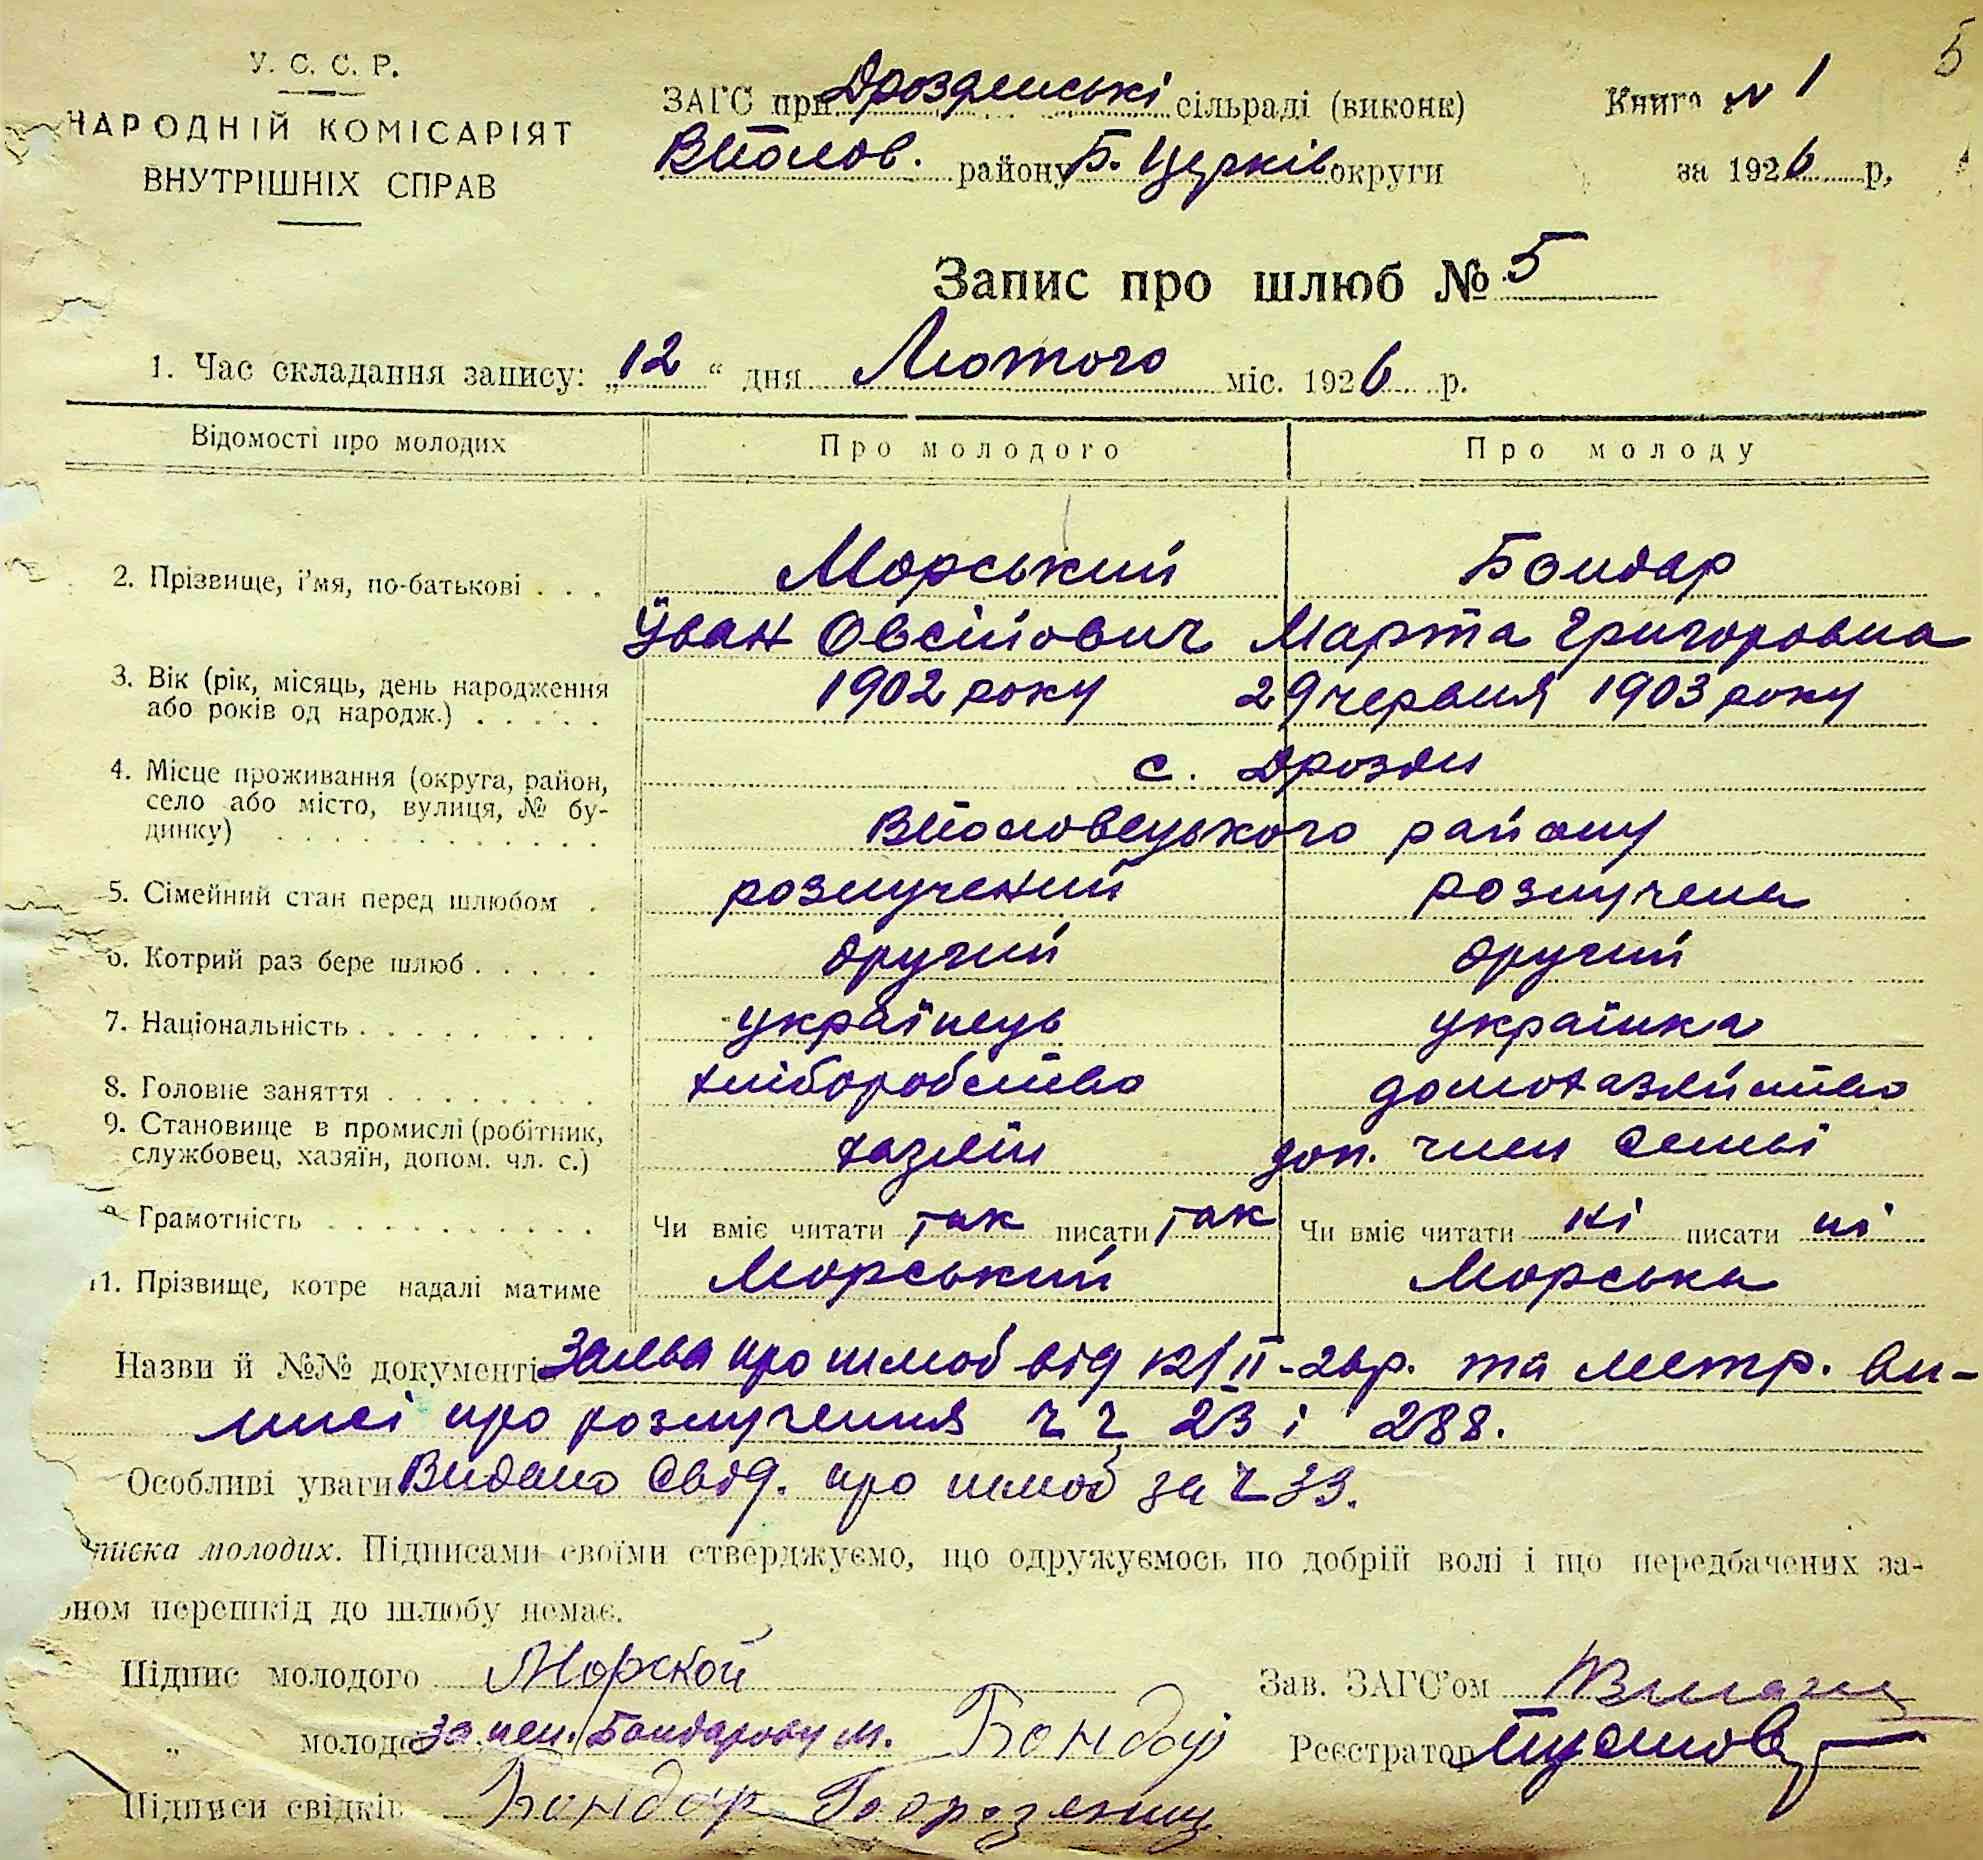 5
У. С. С. Р.
НАРОДНІЙ КОМІСАРІЯТ
ВНУТРІШНІХ СПРАВ
ЗАГС при Дрозденські сільраді (виконк)
районy Б. Церків округи
Книга № 1
за 1926 р,
Запис про шлюб № 5
1. Час складання запису: „12“ дня Лютого міс. 1926 р.
Відомості про молодих Про молодого Про молоду
2. Прізвище, і'мя, по-батькові . . . Морський Бондар
Їван Овсійович Марта Григоровна
3. Вік (рік, місяць, день народження або років од народж.) . . . . . 1902 року 29 червня 1903 року
4. Місце проживання (округа, район, село або місто, вулиця, № бу-
динку) . . . . . . . . . . . .
с. Дрозди
району
5. Сімейний стан перед шлюбом . розлучений розлучена
6. Котрий раз бере шлюб . . . . . другий другий
7. Національність . . . . . . . . . українець українка
8. Головне заняття . . . . . . . . хліборобство домохазяйство
9. Становище в промислі (робітник, службовец, хазяїн, допом. чл. с.) хазяїн доп. член семьї
Грамотність . . . . . . . . . . Чи вміє читати так писати так Чи вміє читати ні писати ні
11. Прізвище, котре надалі матиме Морський Морська
Назви й №№ документів Заява про шлюб від 12/II-26р. та метр. ви-
писі про розлучення ч ч 23 і 288.
Особливі уваги Видано свід. про шлюб за ч 33.
писка молодих. Підписами своїми стверджуємо, що одружуємось по добрій волі і що передбачених за-
оном перешкід до шлюбу немає.
Підпис молодого Морской
Зав. ЗАГС'ом
„ молодої за неп. Бондарову М. Бондар
Реєстратор
Підписи свідків Бондар